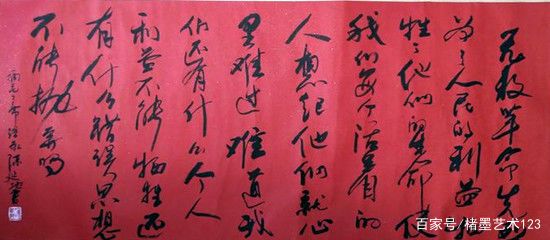 无数革命先烈
为了人民的利益
牺牲了他们的生命使
我们每个活着的
人想起他们就心
里难过难道我
们还有什么个人
利益不能牺牲还
有什么错误思想
不能抛弃吗
摘毛主席语录
百家号/楮墨艺术123